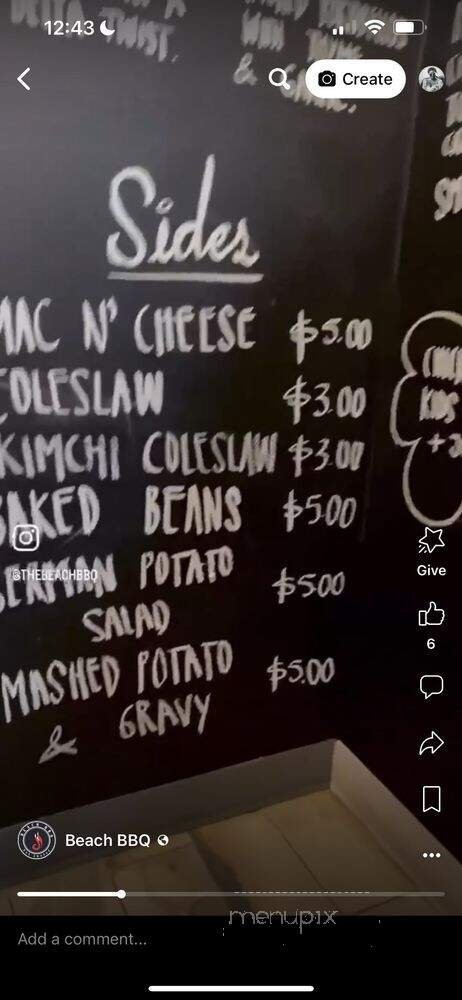 12:43
TWIST.
&
Create
Sides
MAC N' CHEESE $5.00
COLESLAW $3.00
KIMCHI COLESLAW $3.00
BAKED BEANS $5.00
@THEBEACHBBQ
GERMAN POTATO $5.00
SALAD
Give
MASHED POTATO $5.00
& GRAVY
KIDS
6
Beach BBQ
menupix
Add a comment...